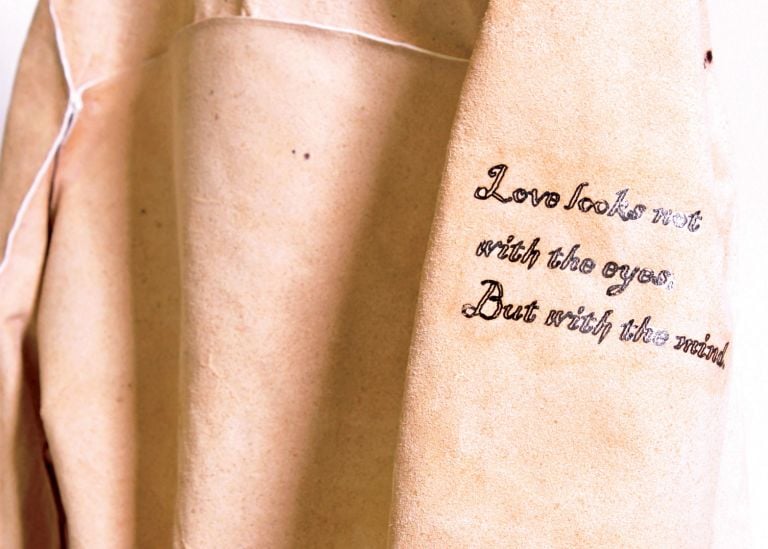 Love looks not
with the eyes,
But with the mind.